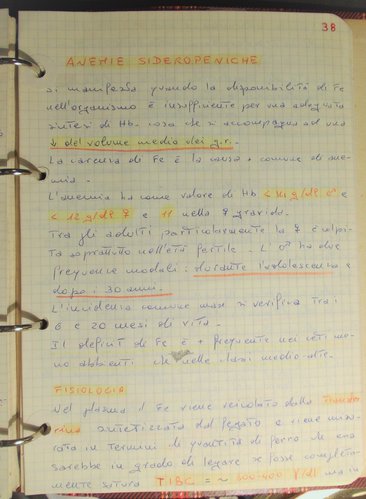 38
ANEMIE SIDEROPENICHE
si manifesta quando la disponibilità di Fe
nell'organismo è insufficiente per una adeguata
sintesi di Hb. cosa che si accompagna ad una
↓ del volume medio dei g.r.
La carenza di Fe è la causa + comune di ane-
mia.
L'anemia ha come valore di Hb < 14 g/dl ♂ e
< 12 g/dl ♀ e 11 nella ♀ gravida.
Tra gli adulti particolarmente la ♀ è colpi-
ta soprattutto nell'età fertile. L' ♂ ha due
frequenze modali: durante l'adolescenza e
dopo i 30 anni.
L'incidenza comune max si verifica tra i
6 e 20 mesi di vita.
Il deficit di Fe è + frequente nei ceti me-
no abbienti che nelle classi medio-alte.
FISIOLOGIA
Nel plasma il Fe viene veicolato dalla Transfer
rina sintetizzata dal fegato e viene misu-
rata in termini di quantità di ferro che essa
sarebbe in grado di legare se fosse completa-
mente satura TIBC = ~ 300-400 γ/dl ma in